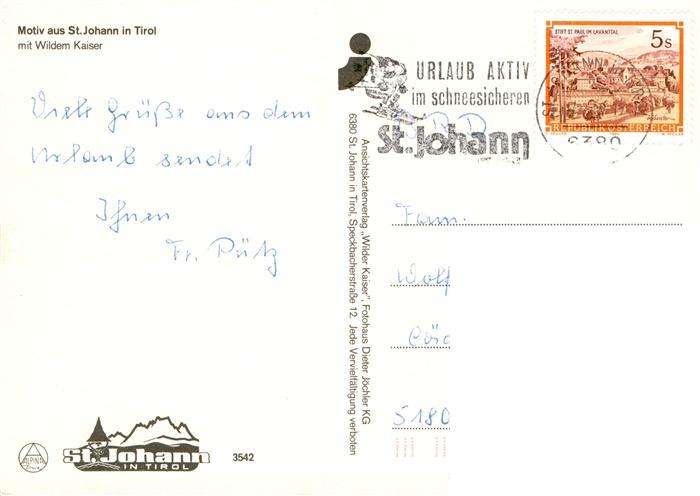 Motiv aus St. Johann in Tirol
mit Wildem Kaiser
Viele Grüße aus dem
Urlaub sendet
Ihnen
Fr. Pütz
St. Johann
IN TIROL
3542
ALPINA
Ansichtskartenverlag „Wilder Kaiser", Fotohaus Dieter Jöchler KG
6380 St. Johann in Tirol, Speckbacherstraße 12. Jede Vervielfältigung verboten
i
URLAUB AKTIV
im schneesicheren
St. Johann
STIFT ST. PAUL IM LAVANTTAL
5 S
REPUBLIK ÖSTERREICH
6380
Fam.
Wolf
5180